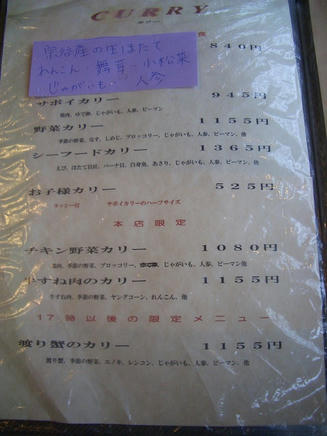 CURRY
カリー
食
宗谷産の生ほたて
れんこん・舞茸・小松菜
じゃがいも 人参
840円
サボイカリー 945円
鶏肉、ゆで卵、じゃがいも、人参、ピーマン
野菜カリー 1155円
季節の野菜、茄子、しめじ、ブロッコリー、じゃがいも、人参、ピーマン、他
シーフードカリー 1365円
えび、ほたて貝柱、パーナ貝、白身魚、あさり、じゃがいも、人参、ピーマン、他
お子様カリー 525円
ラッシー付 サボイカリーのハーフサイズ
本店限定
チキン野菜カリー 1080円
鶏肉、季節の野菜、ブロッコリー、じゃがいも、人参、ピーマン、他
牛すね肉のカリー 1155円
牛すね肉、季節の野菜、ヤングコーン、れんこん、他
17時以後の限定メニュー
渡り蟹のカリー 1155円
渡り蟹、季節の野菜、エノキ、レンコン、じゃがいも、人参、ピーマン、他